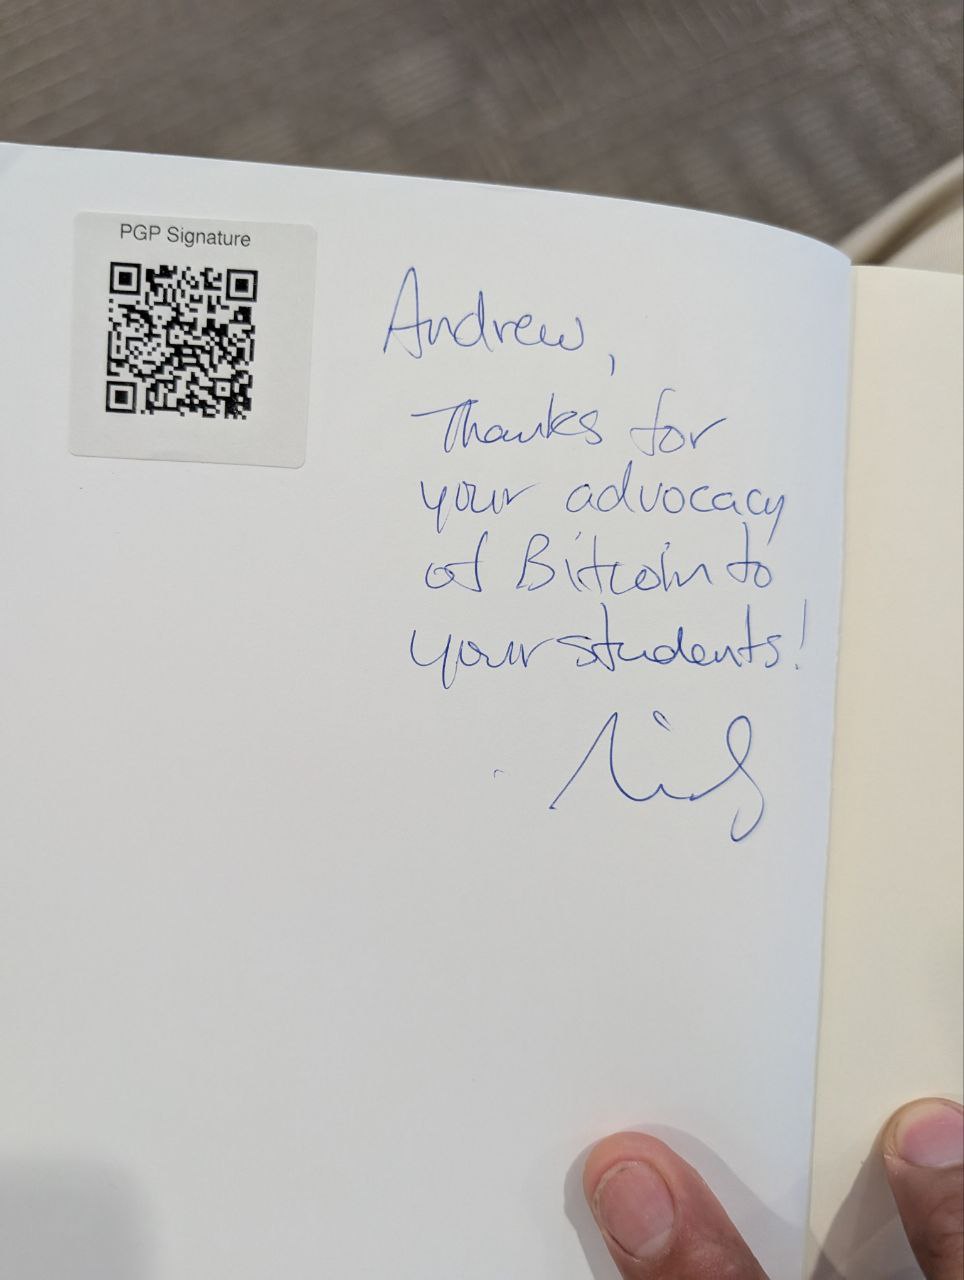 PGP Signature
Andrew,
Thanks for
your advocacy
of Bitcoin to
your students!